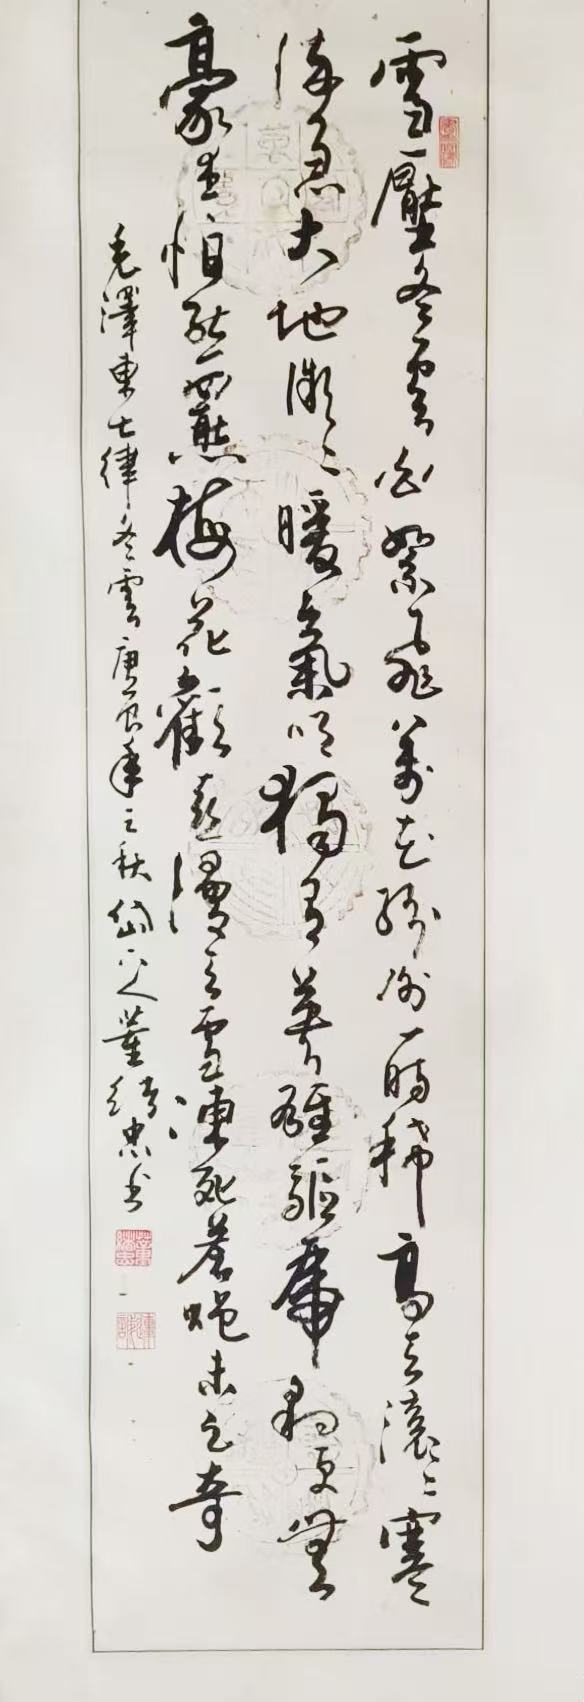 雪壓冬雲白絮飛萬花紛謝一時稀高天滾〻寒
流急大地微〻暖氣吹獨有英雄驅虎豹更無
豪杰怕熊羆梅花歡喜漫天雪凍死蒼蠅未足奇
毛澤東七律冬雲庚寅年之秋岱下人董緒忠書